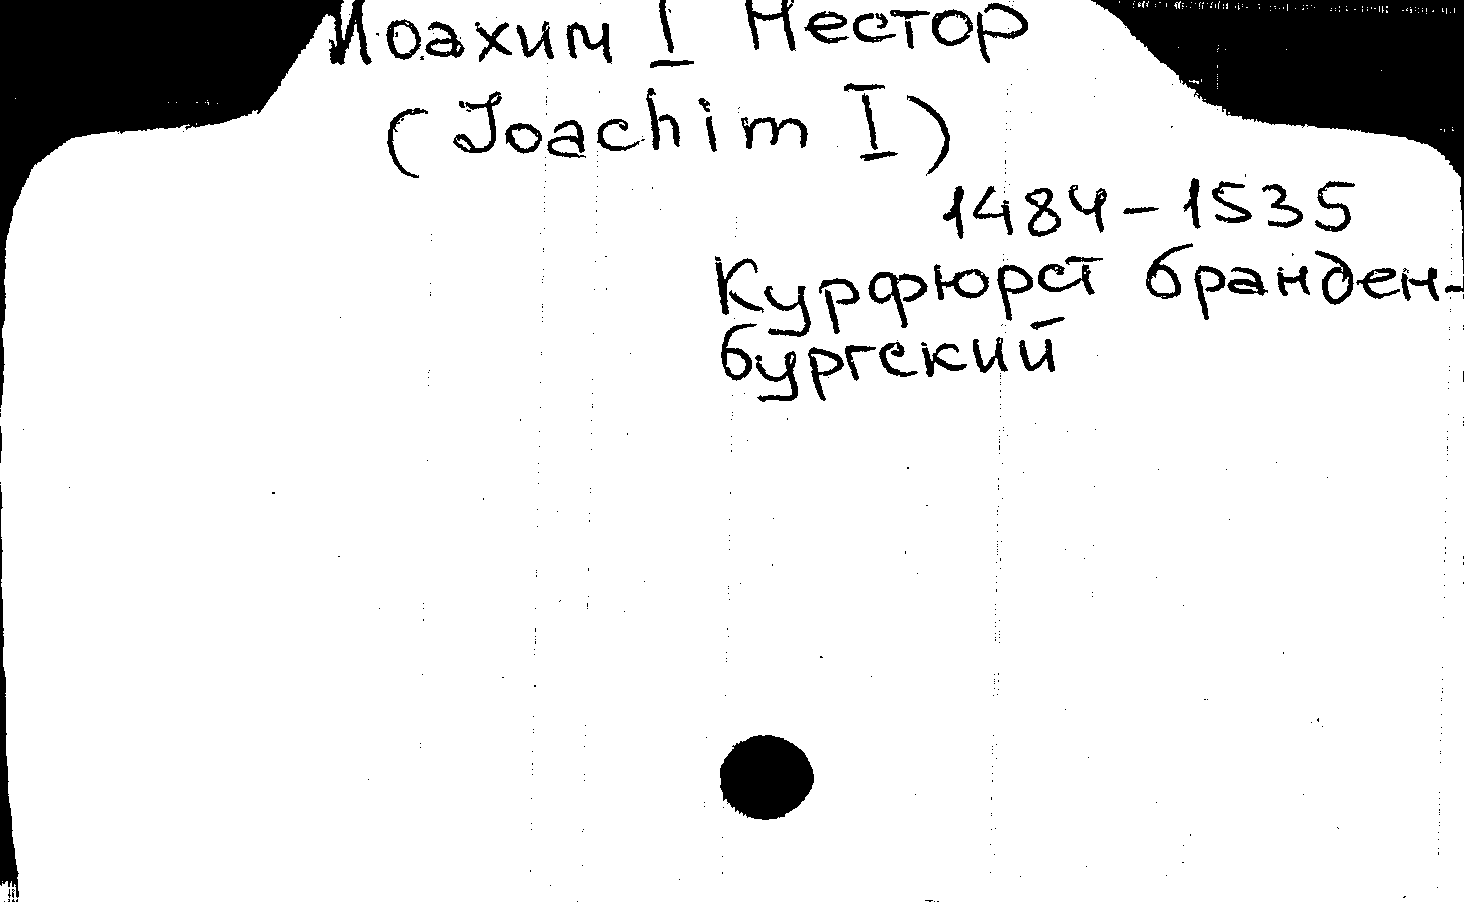 Иоахим I Нестор
(Joachim I)
1484-1535
Курфюрст бранден-
бургский